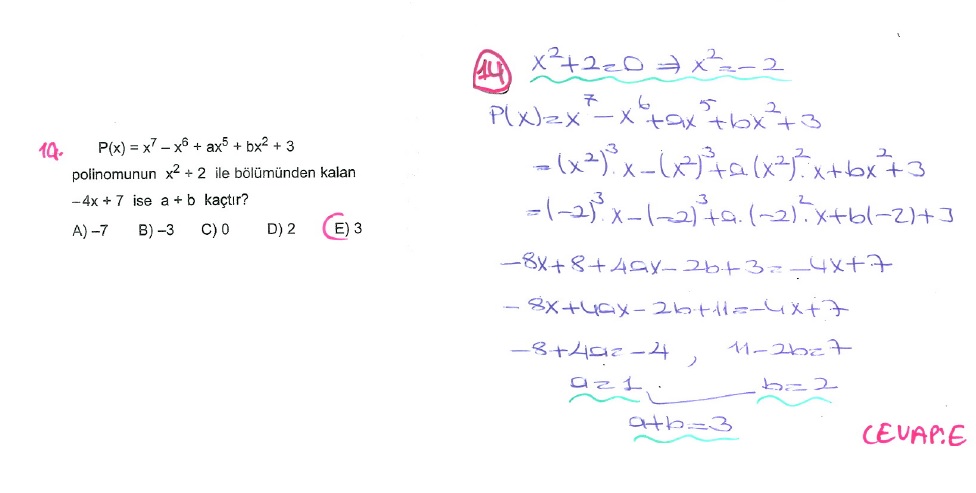 14.
P(x) = x⁷ – x⁶ + ax⁵ + bx² + 3
polinomunun x² + 2 ile bölümünden kalan
–4x + 7 ise a + b kaçtır?
A) –7 B) –3 C) 0 D) 2 E) 3
14 x²+2=0 ⇒ x²=-2
P(x)=x⁷-x⁶+ax⁵+bx²+3
=(x²)³.x-(x²)³+a(x²)².x+bx²+3
=(-2)³.x-(-2)³+a.(-2)².x+b(-2)+3
-8x+8+4ax-2b+3=-4x+7
-8x+4ax-2b+11=-4x+7
-8+4a=-4, 11-2b=7
a=1 b=2
a+b=3
CEVAP:E